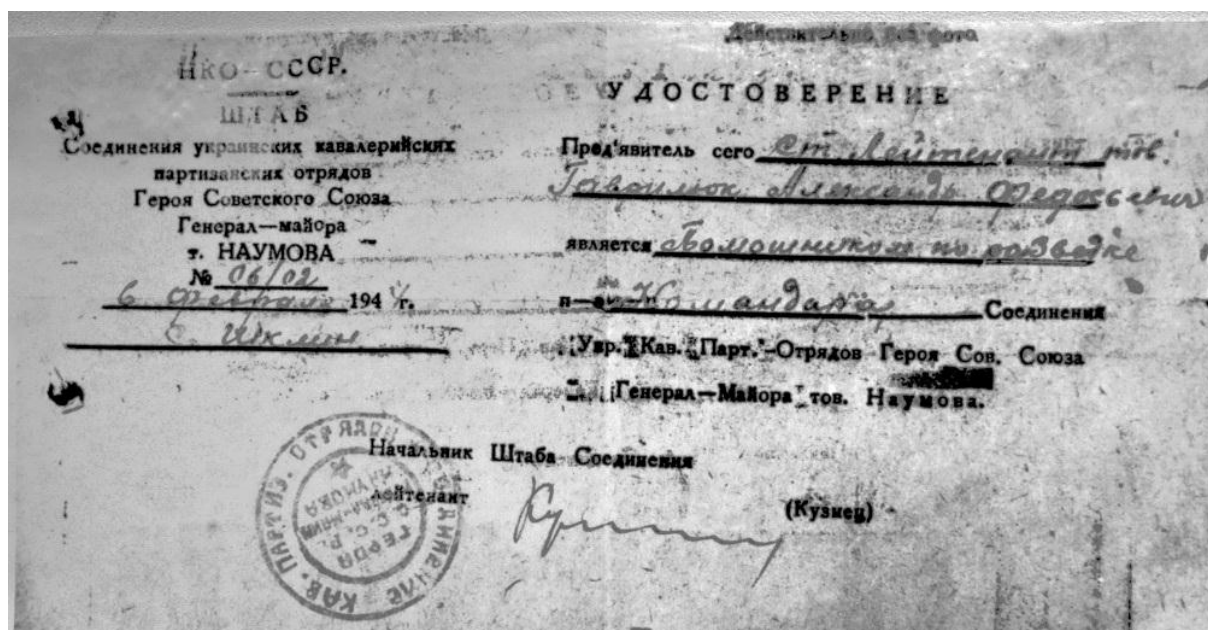 Действительно без фото
НКО–СССР.
ШТАБ
Соединения украинских кавалерийских
партизанских отрядов
Героя Советского Союза
Генерал—майора
т. НАУМОВА
№ 06/02
6 февраля 1944 г.
с.
УДОСТОВЕРЕНИЕ
Пред'явитель сего Ст. Лейтенант тов.
Гаврилюк Александр Федосьевич
является Помошником по разведке
Командира Соединения
Укр. Кав. Парт. Отрядов Героя Сов. Союза
Генерал—Майора тов. Наумова.
Начальник Штаба Соединения
лейтенант (Кузнец)
КАВ. ПАРТИЗ. ОТРЯДОВ
ГЕРОЯ
НАУМОВА